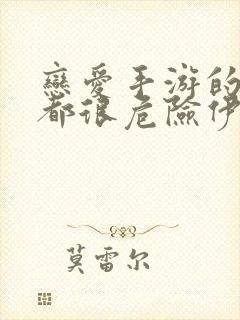 戀愛手游的
都很危險伊
莫雷尔